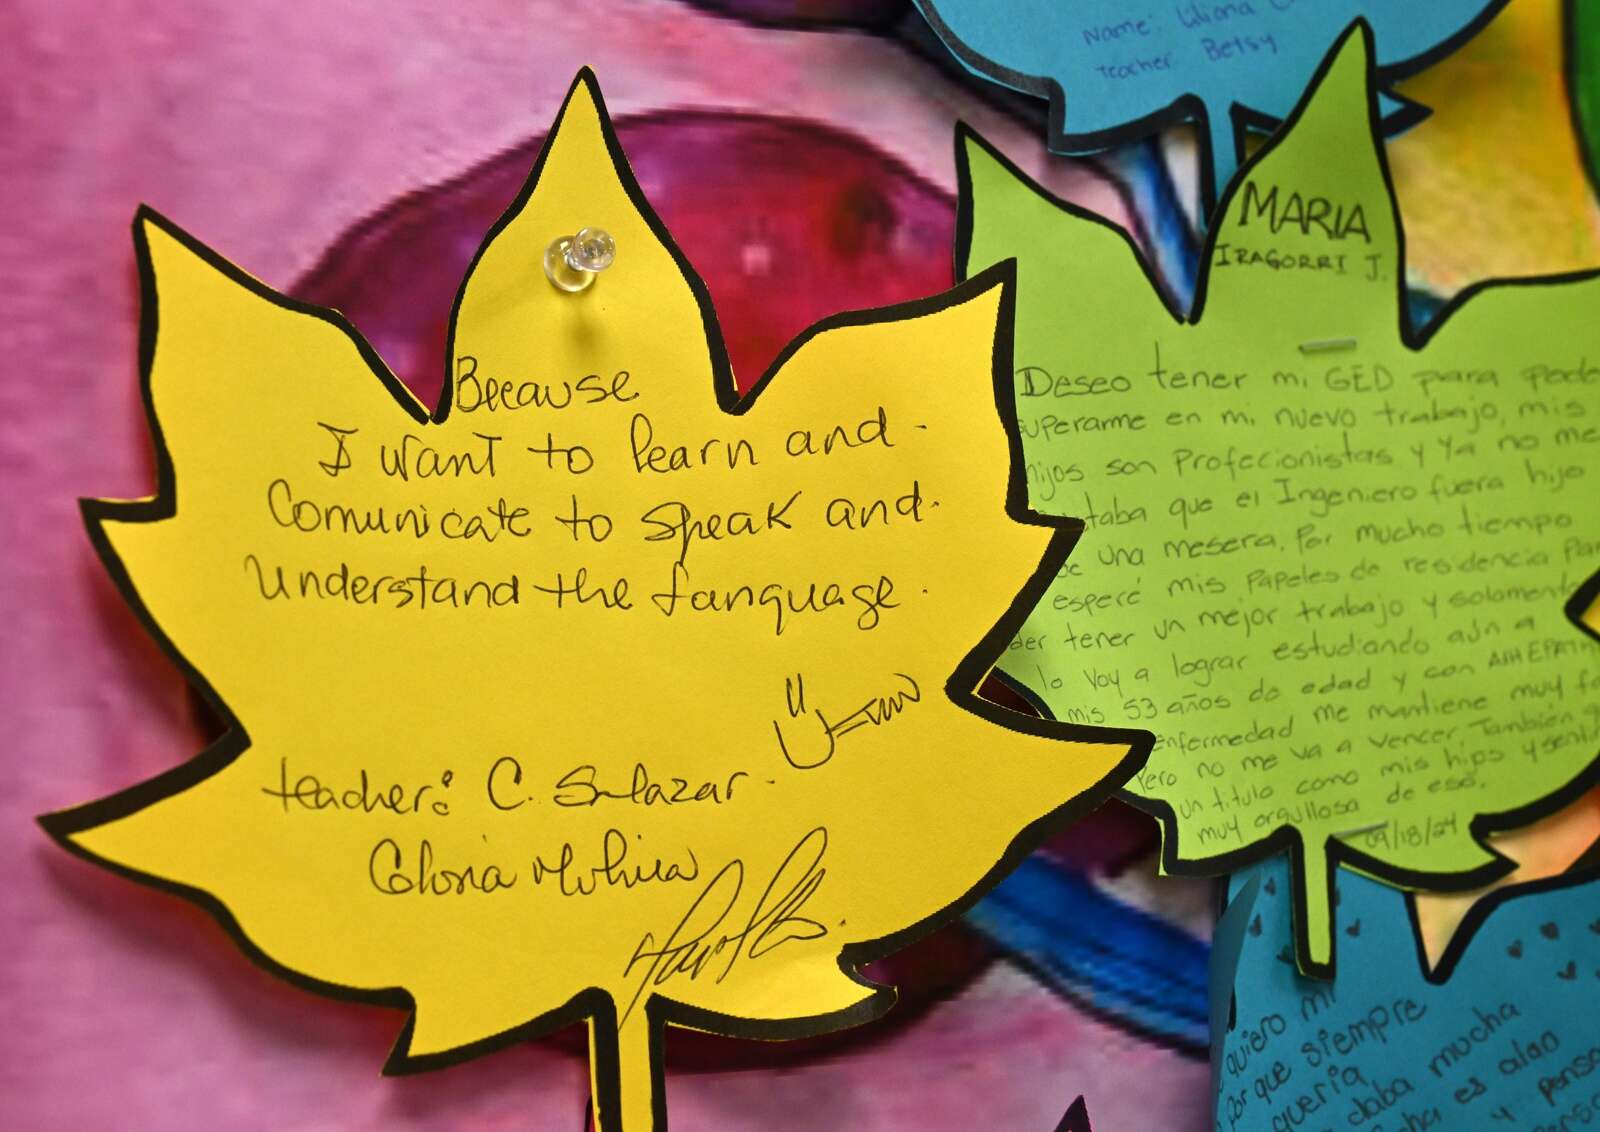 Because
I want to learn and
Comunicate to speak and
Understand the language.
teacher: C. Salazar
Gloria
Name: Liliana
teacher Betsy
MARIA
IRAGORRI J.
Deseo tener mi GED para pode
uperarme en mi nuevo trabajo, mis
hijos son Profecionistas y Ya no me
taba que el Ingeniero fuera hijo
de una mesera. Por mucho tiempo
esperé mis Papeles de residencia
der tener un mejor trabajo y solament
lo Voy a lograr estudiando aún a
mis 53 años de edad y con
enfermedad me mantiene muy
Pero no me va a vencer. También
un título como mis hijos y sentir
muy orgullosa de eso.
09/18/24
quiero mi
Por que siempre
queria
daba mucha
es alan
y penso